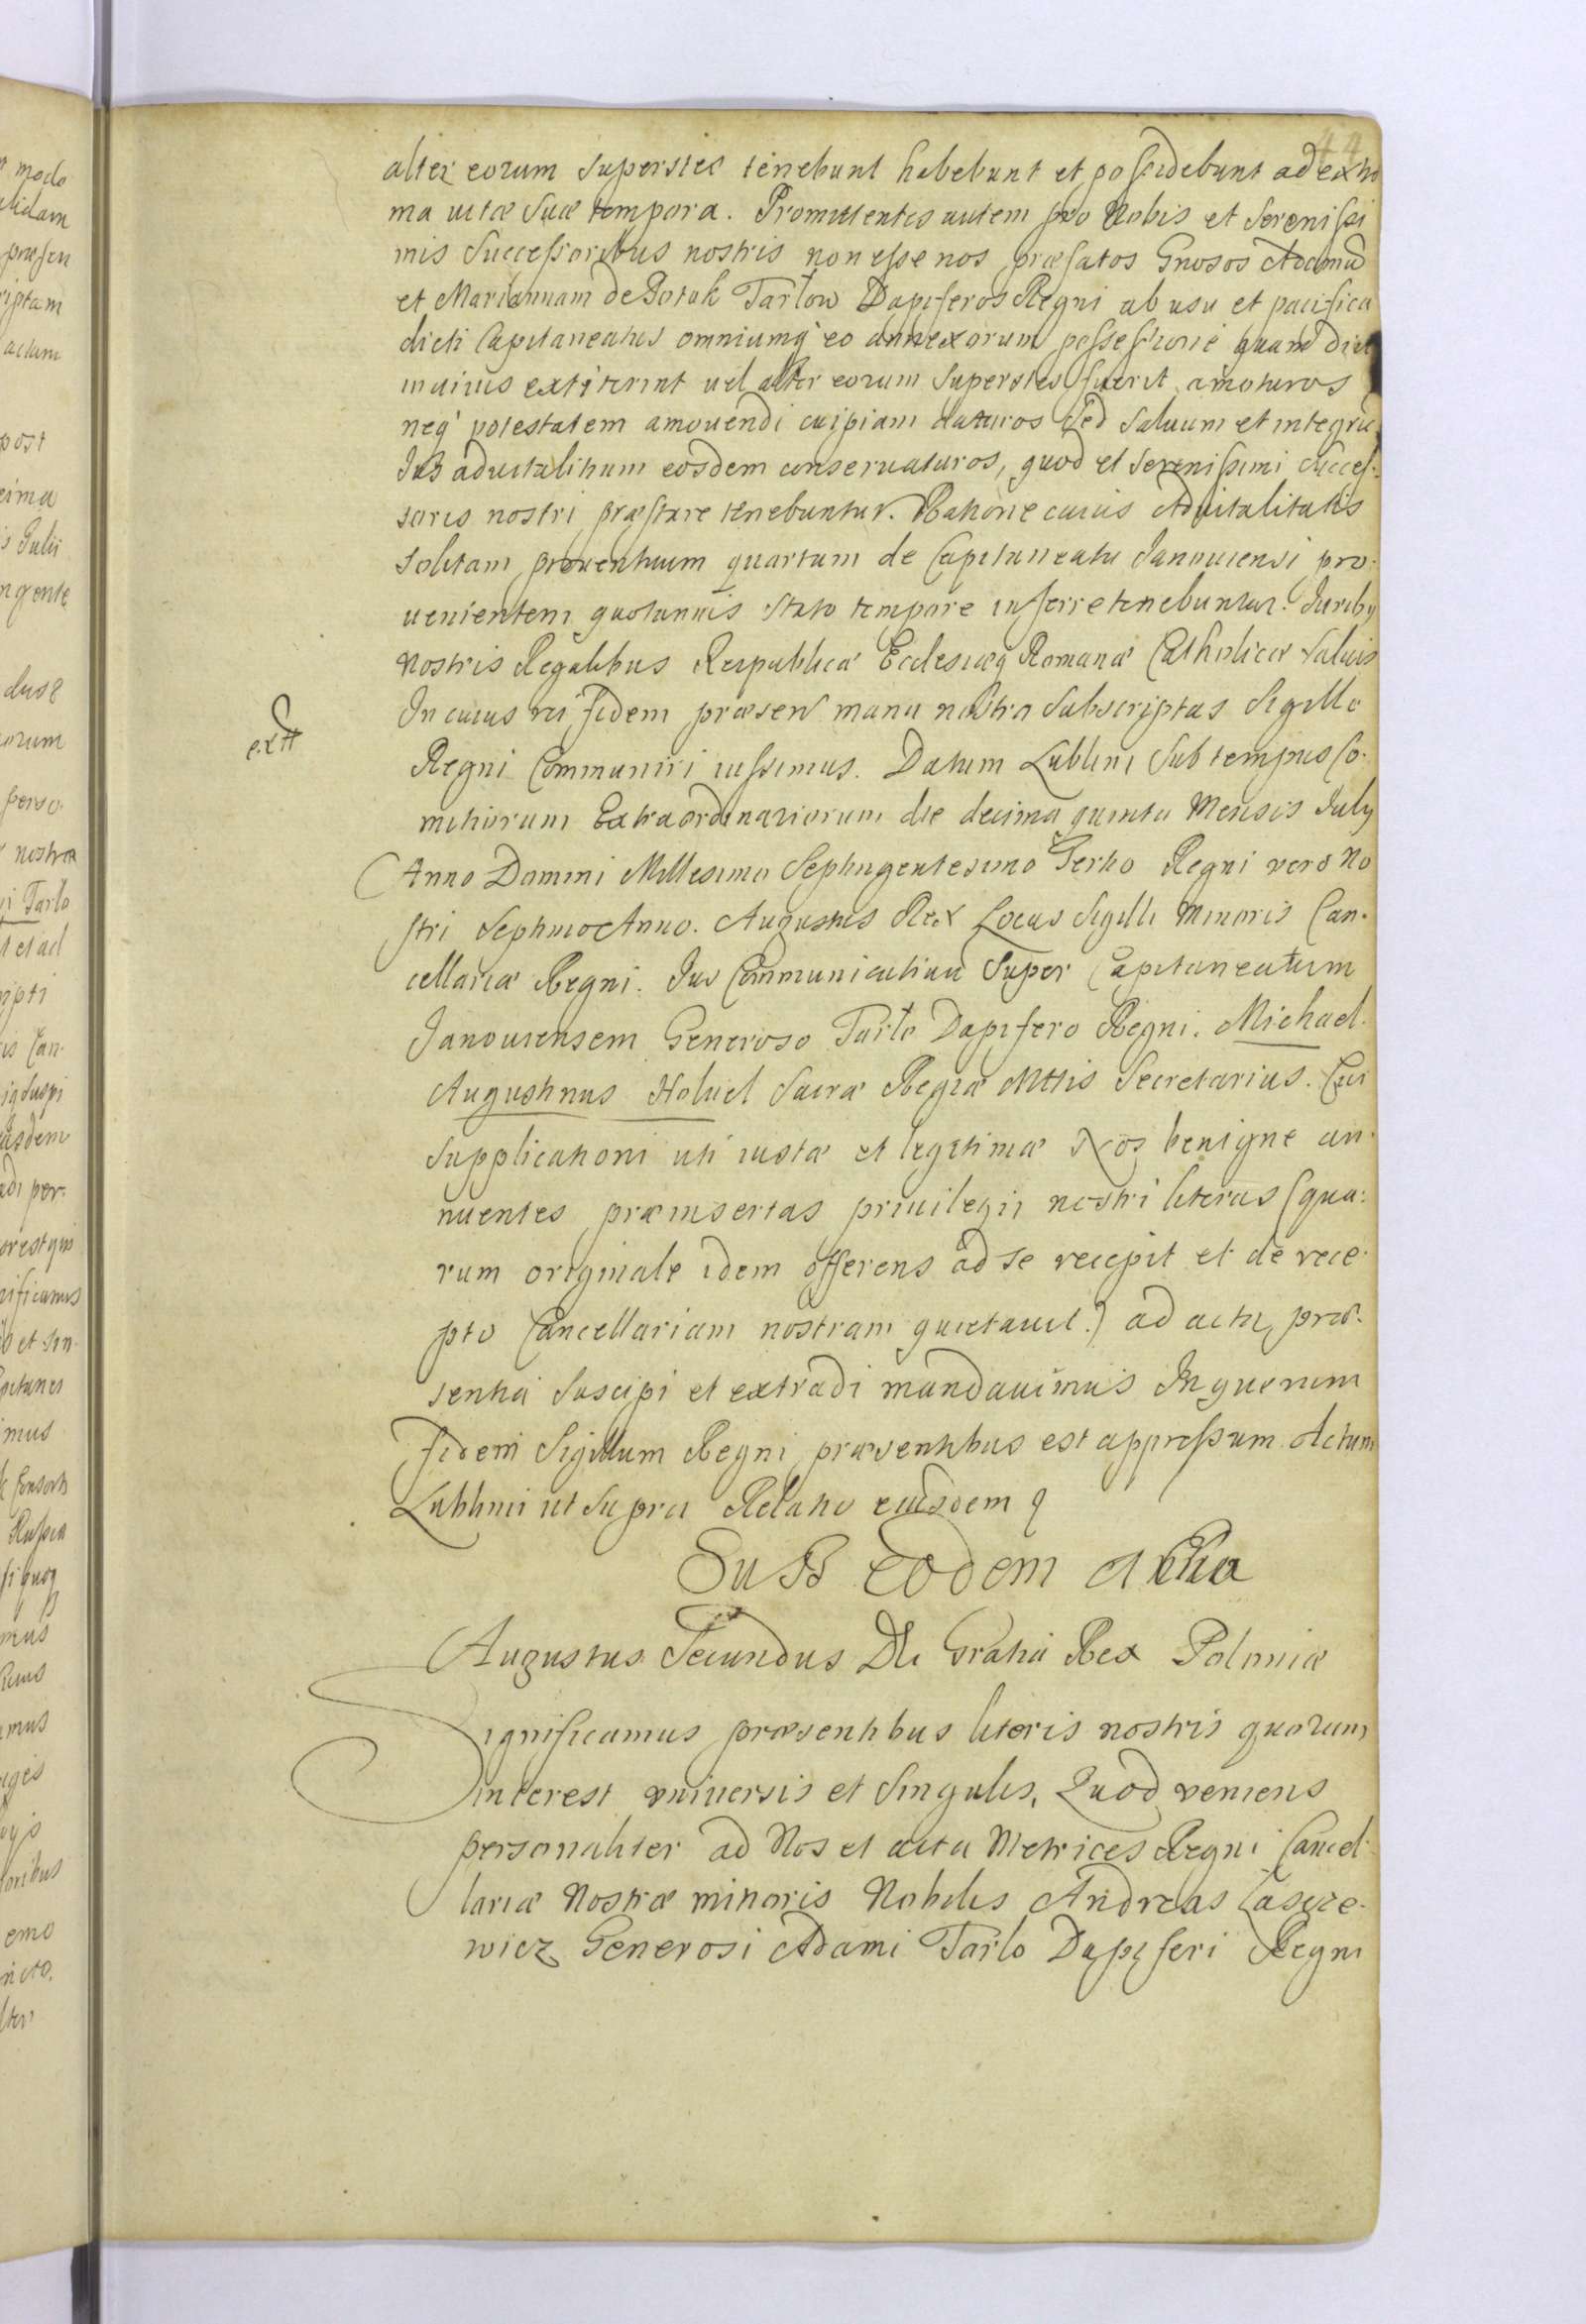 44
alter eorum superstes tenebunt habebunt et possidebunt ad extre
ma vitæ suæ tempora. Promittentes autem pro Nobis et Serenissi
mis Successoribus nostris non esse nos præfatos Gnosos Adamū
et Mariannam de Potok Tarłow Dapiferos Regni ab usu et pacifica
dicti Capitaneatus omniumq' eo annexorum possessione quam diu
in vivis extiterint vel alter eorum superstes fuerit amoturos
neq' potestatem amovendi cuipiam daturos sed salvum et integrū
Jus advitalitium eosdem conservaturos, quod et Serenissimi Succes-
sores nostri præstare tenebuntur. Ratione cuius Advitalitatis
solitam proventuum quartam de Capitaneatu Janoviensi pro-
venientem quotannis stato tempore inferre tenebuntur. Juribq
nostris Regalibus Reipublicæ Ecclesiæq Romanæ Catholicæ salvis
In cuius rei fidem præsen manu nostra subscriptas Sigillo
extt
Regni Communiri iussimus. Datum Lublini sub tempus Co-
mitiorum Extraordinariorum die decima quinta Mensis July
Anno Domini Millesimo Septingentesimo Tertio Regni vero No
stri Septimo Anno. Augustus Rex Locus Sigilli Minoris Can-
cellariæ Regni. Jus Communicativū Super Capitaneatum
Janoviensem Generoso Tarło Dapifero Regni. Michael
Augustinus Holuel Sacræ Regiæ Mttis Secretarius. Cui
supplicationi uti iustæ et legitimæ Nos benigne an-
nuentes præinsertas privilegii nostri literas (qua-
rum originale idem offerens ad se recepit et de rece-
pto Cancellariam nostram quietavit.) ad acta præ-
sentia suscipi et extradi mandavimus In quorum
fidem Sigillum Regni præsentibus est appressum. Actum
Lublini ut supra Relatio eiusdem
Sub eodem Actu
Augustus Secundus Dei Gratia Rex Poloniæ
Significamus præsentibus literis nostris quorum
interest universis et singulis. Quod veniens
personaliter ad Nos et acta Metrices Regni Cancel-
lariæ Nostræ minoris Nobilis Andreas
Generosi Adami Tarło Dapiferi Regni